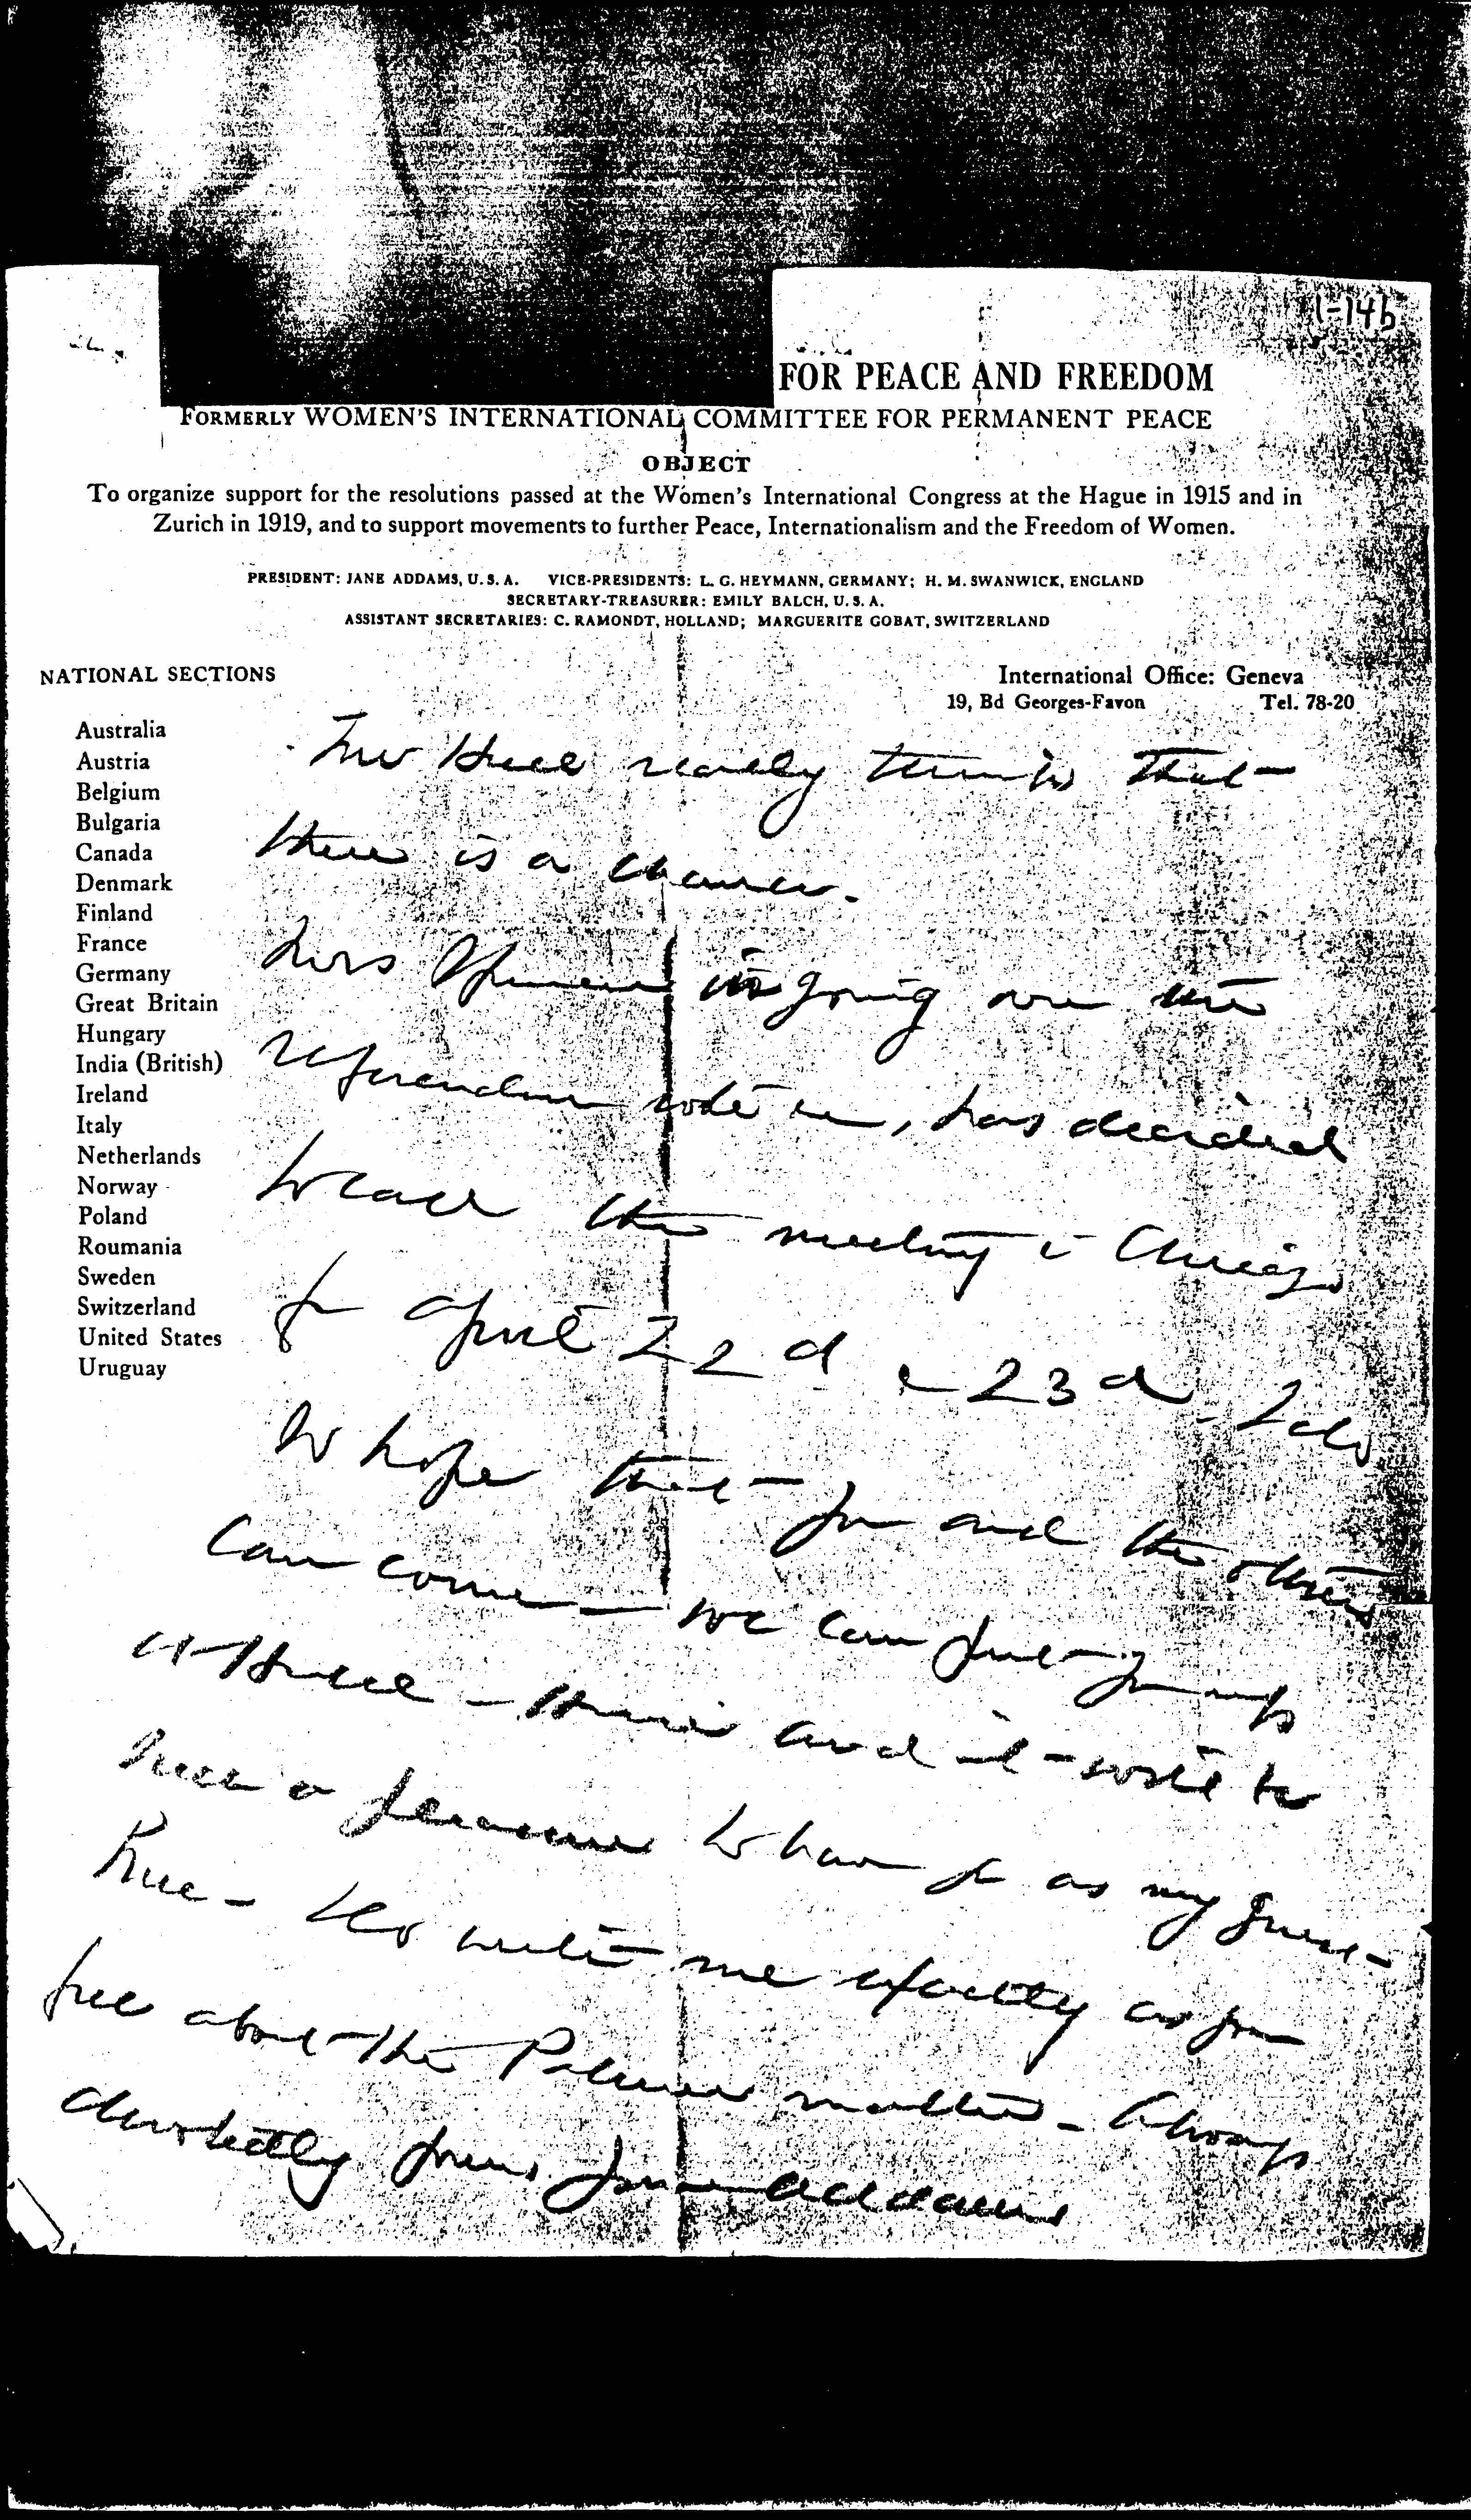 1-146
FOR PEACE AND FREEDOM
FORMERLY WOMEN'S INTERNATIONAL COMMITTEE FOR PERMANENT PEACE
OBJECT
To organize support for the resolutions passed at the Women's International Congress at the Hague in 1915 and in
Zurich in 1919, and to support movements to further Peace, Internationalism and the Freedom of Women.
PRESIDENT: JANE ADDAMS, U. S. A. VICE-PRESIDENTS: L. G. HEYMANN, GERMANY; H. M. SWANWICK, ENGLAND
SECRETARY-TREASURER: EMILY BALCH, U. S. A.
ASSISTANT SECRETARIES: C. RAMONDT, HOLLAND; MARGUERITE GOBAT, SWITZERLAND
NATIONAL SECTIONS
International Office: Geneva
19, Bd Georges-Favon Tel. 78-20
Australia
Austria
Belgium
Bulgaria
Canada
Denmark
Finland
France
Germany
Great Britain
Hungary
India (British)
Ireland
Italy
Netherlands
Norway
Poland
Roumania
Sweden
Switzerland
United States
Uruguay
Hull really thinks that
there is a chance.
Mrs Spencer in going over the
referendum vote in, has decided
to call the meeting in Chicago
for April 22d & 23d. I do
so hope that you and the others
can come — we can put you up
at Hull-House and it will be
such a pleasure to have you as my guest
Please do write me exactly as you
feel about the Palmer matter - Always
devotedly yours Jane Addams